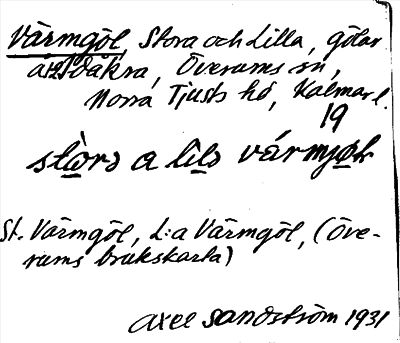 Värmgöl, Stora och Lilla, gölar
åkra, Överums sn,
Norra Tjusts hd, Kalmar l.
19
stòrə a lilə vármjøl
St. Värmgöl, L:a Värmgöl, (Öve-
rums brukskarta)
Axel Sandström 1931